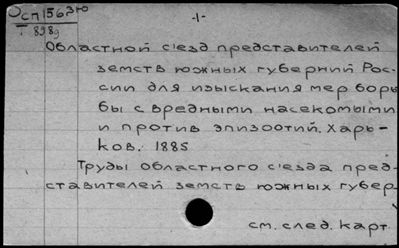 Осп 1563ю
Т 8989
-1-
Областной съезд представителей
земств южных губерний Рос-
сии для изыскания мер борь
бы с вредными насекомыми
и против эпизоотий. Харь-
ков. 1885
Труды областного съезда пред-
ставителей земств южных губер
см. след. карт